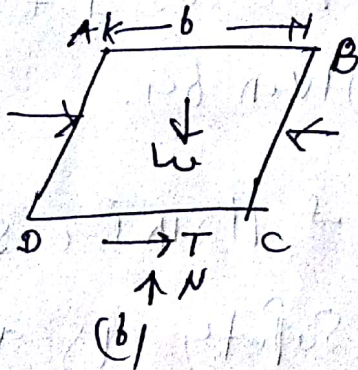 A K b H B
W
D T C
N
(b)